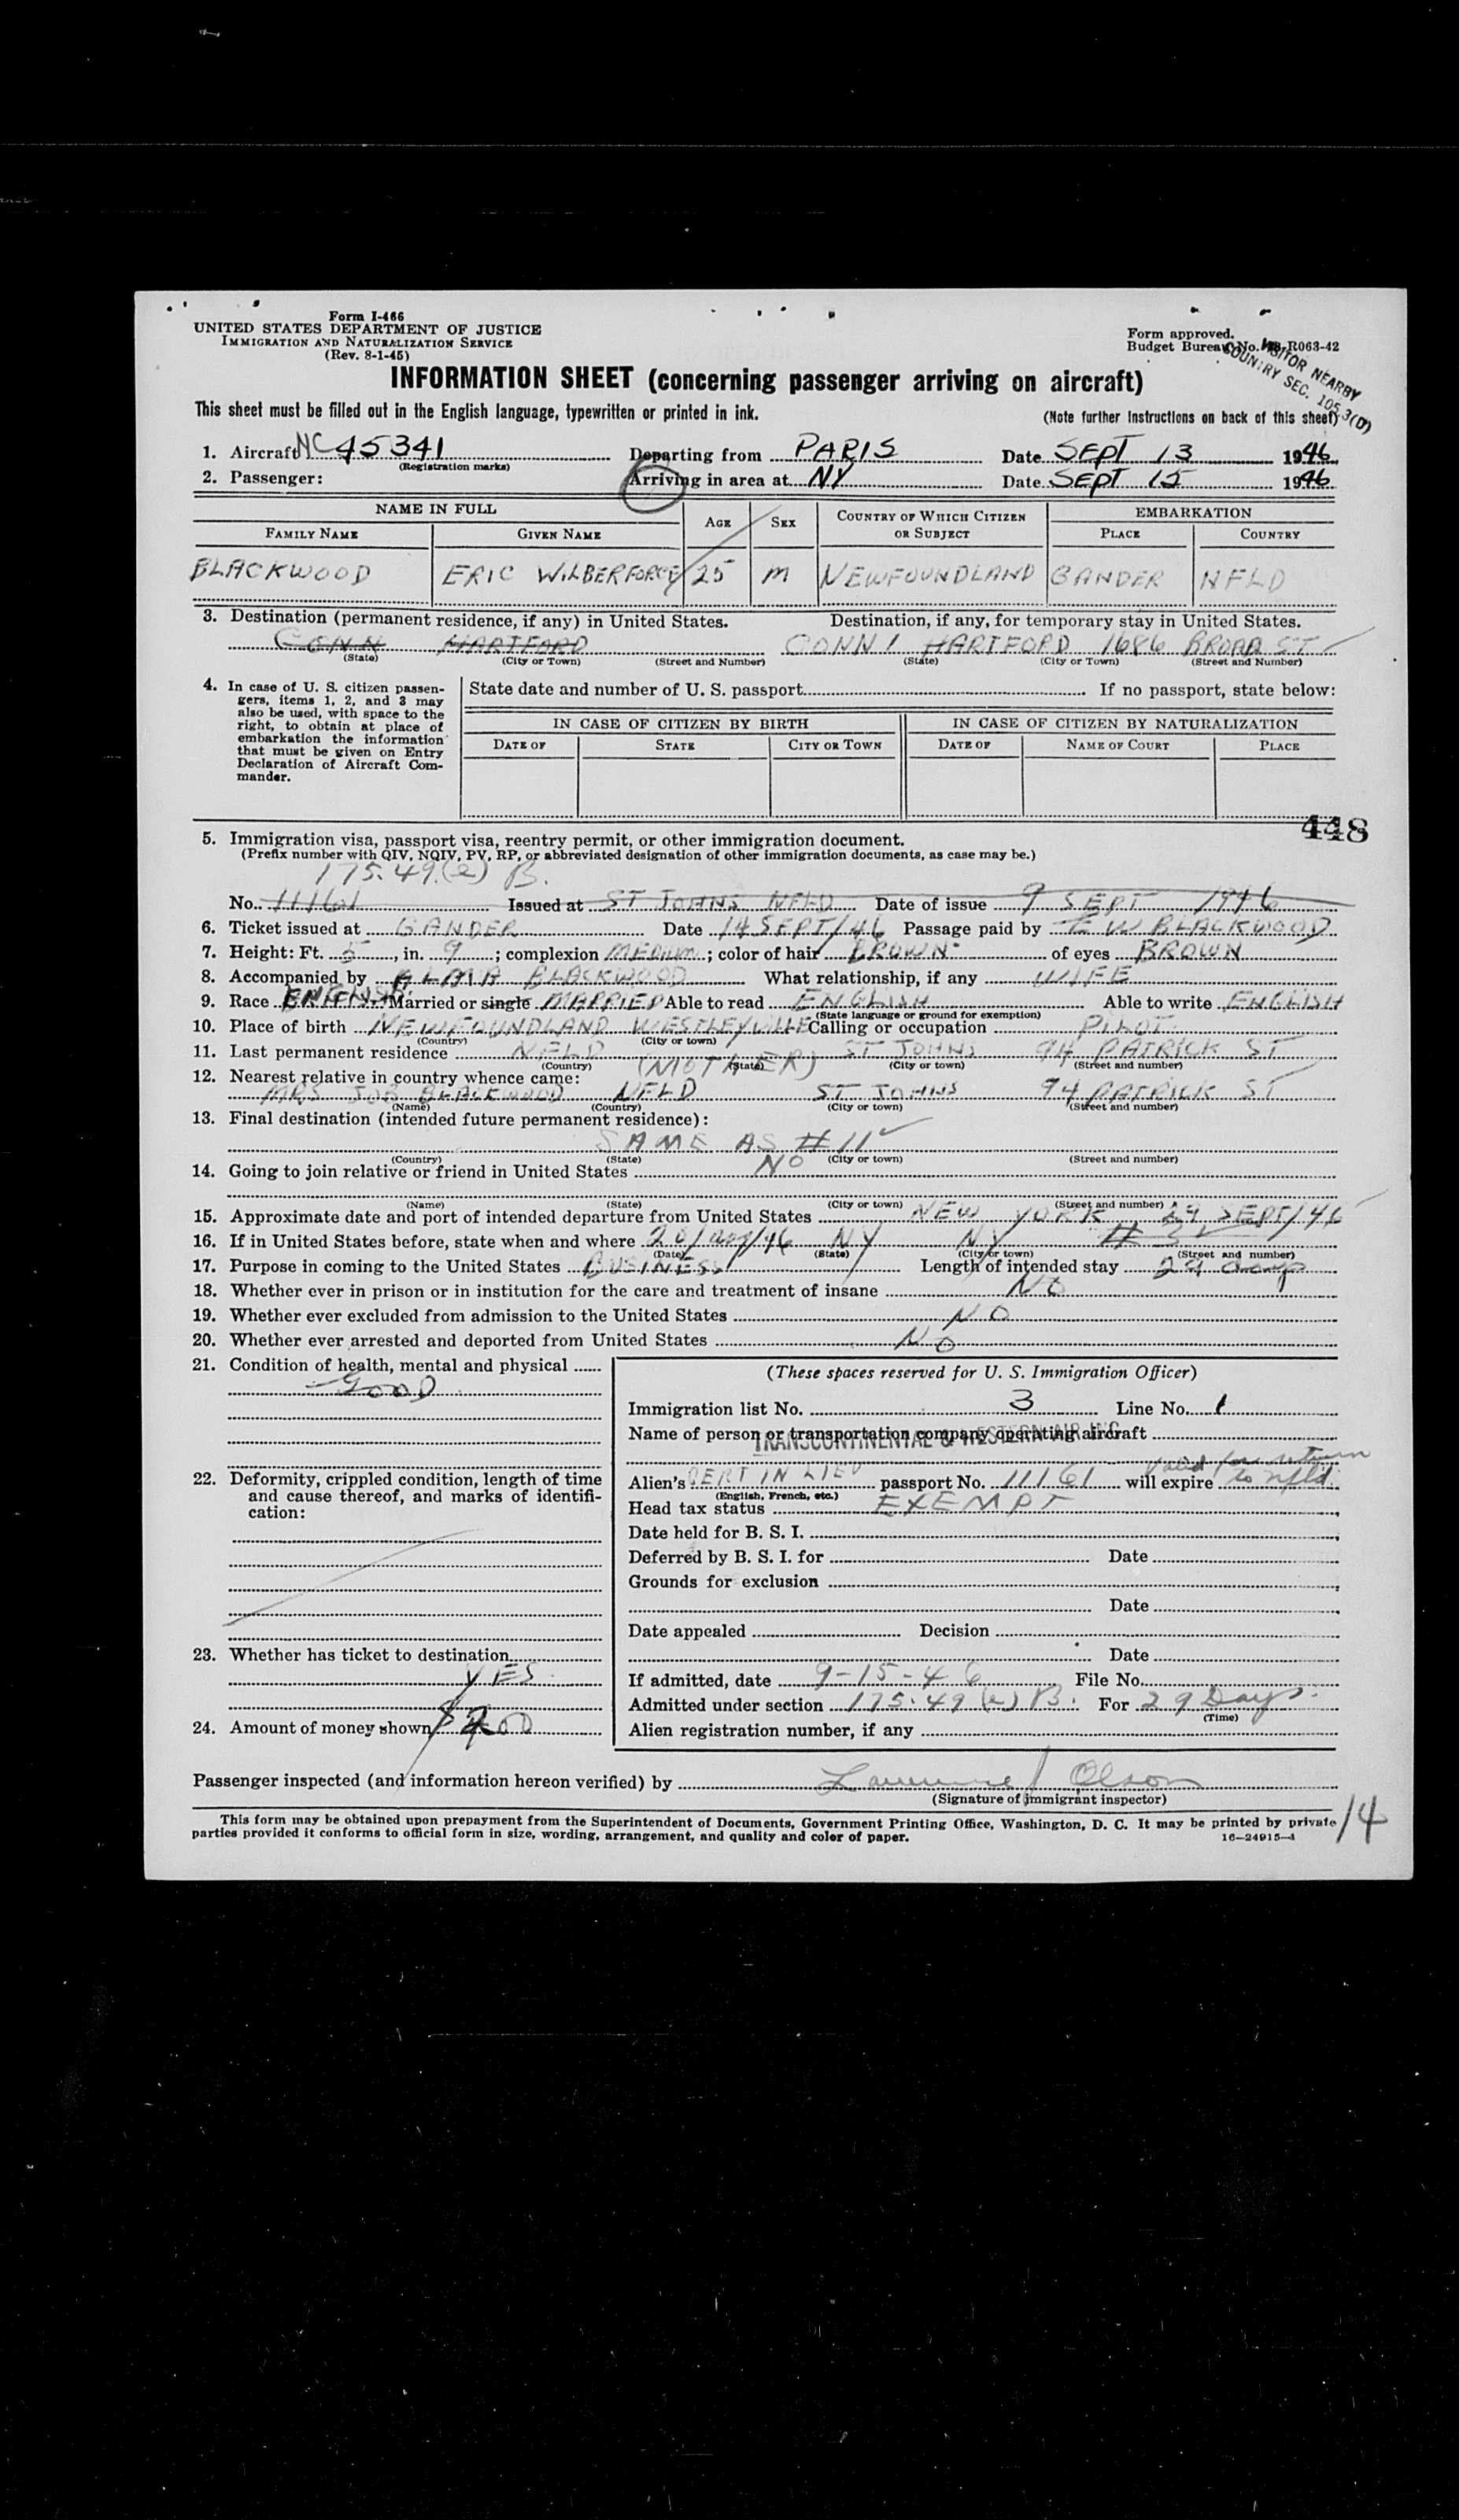 Form I-466
UNITED STATES DEPARTMENT OF JUSTICE
IMMIGRATION AND NATURALIZATION SERVICE
(Rev. 8-1-45)
Form approved.
Budget Bureau No. R063-42
VISITOR NEARBY
COUNTRY SEC. 105.3(D)
INFORMATION SHEET (concerning passenger arriving on aircraft)
This sheet must be filled out in the English language, typewritten or printed in ink.
(Note further instructions on back of this sheet)
1. Aircraft NC 45341 Departing from PARIS Date SEPT 13 1946
(Registration marks)
2. Passenger: Arriving in area at NY Date SEPT 15 1946
NAME IN FULL AGE SEX COUNTRY OF WHICH CITIZEN OR SUBJECT EMBARKATION
FAMILY NAME GIVEN NAME PLACE COUNTRY
BLACKWOOD ERIC WILBERFORCE 25 M NEWFOUNDLAND GANDER NFLD
3. Destination (permanent residence, if any) in United States. Destination, if any, for temporary stay in United States.
CONN HARTFORD CONN HARTFORD 1686 BROAD ST
(State) (City or Town) (Street and Number) (State) (City or Town) (Street and Number)
4. In case of U. S. citizen passengers, items 1, 2, and 3 may also be used, with space to the right, to obtain at place of embarkation the information that must be given on Entry Declaration of Aircraft Commander.
State date and number of U. S. passport If no passport, state below:
IN CASE OF CITIZEN BY BIRTH IN CASE OF CITIZEN BY NATURALIZATION
DATE OF STATE CITY OR TOWN DATE OF NAME OF COURT PLACE
448
5. Immigration visa, passport visa, reentry permit, or other immigration document.
(Prefix number with QIV, NQIV, PV, RP, or abbreviated designation of other immigration documents, as case may be.)
175.49.(e) B.
No. 11161 Issued at ST JOHNS NFLD Date of issue 9 SEPT 1946
6. Ticket issued at GANDER Date 14 SEPT/46 Passage paid by E W BLACKWOOD
7. Height: Ft. 5, in. 9; complexion MEDIUM; color of hair BROWN of eyes BROWN
8. Accompanied by BLACKWOOD What relationship, if any WIFE
9. Race ENGLISH Married or single MARRIED Able to read ENGLISH Able to write ENGLISH
(State language or ground for exemption)
10. Place of birth NEWFOUNDLAND WESTLEYVILLE Calling or occupation PILOT
(Country) (City or town)
11. Last permanent residence NFLD ST JOHNS 94 PATRICK ST
(Country) (State) (City or town) (Street and number)
(MOTHER)
12. Nearest relative in country whence came:
MRS JOB BLACKWOOD NFLD ST JOHNS 94 PATRICK ST
(Name) (Country) (City or town) (Street and number)
13. Final destination (intended future permanent residence):
SAME AS # 11
(Country) (State) (City or town) (Street and number)
14. Going to join relative or friend in United States NO
(Name) (State) (City or town) (Street and number)
15. Approximate date and port of intended departure from United States NEW YORK 29 SEPT/46
16. If in United States before, state when and where 20/Aug/46 NY NY
(Date) (State) (City or town) (Street and number)
17. Purpose in coming to the United States BUSINESS Length of intended stay 29 days
18. Whether ever in prison or in institution for the care and treatment of insane NO
19. Whether ever excluded from admission to the United States NO
20. Whether ever arrested and deported from United States NO
21. Condition of health, mental and physical
GOOD
22. Deformity, crippled condition, length of time and cause thereof, and marks of identification:
23. Whether has ticket to destination
YES
24. Amount of money shown
(These spaces reserved for U. S. Immigration Officer)
Immigration list No. 3 Line No. 1
Name of person or transportation company operating aircraft
TRANSCONTINENTAL & WESTERN AIR INC
Alien's CERT IN LIEU passport No. 11161 will expire Valid for return to Nfld.
(English, French, etc.)
Head tax status EXEMPT
Date held for B. S. I.
Deferred by B. S. I. for Date
Grounds for exclusion
Date
Date appealed Decision
Date
If admitted, date 9-15-46 File No.
Admitted under section 175.49 (e) B. For 29 Days.
(Time)
Alien registration number, if any
Passenger inspected (and information hereon verified) by Lawrence J Olson
(Signature of immigrant inspector)
This form may be obtained upon prepayment from the Superintendent of Documents, Government Printing Office, Washington, D. C. It may be printed by private
parties provided it conforms to official form in size, wording, arrangement, and quality and color of paper.
16—24915-1
14